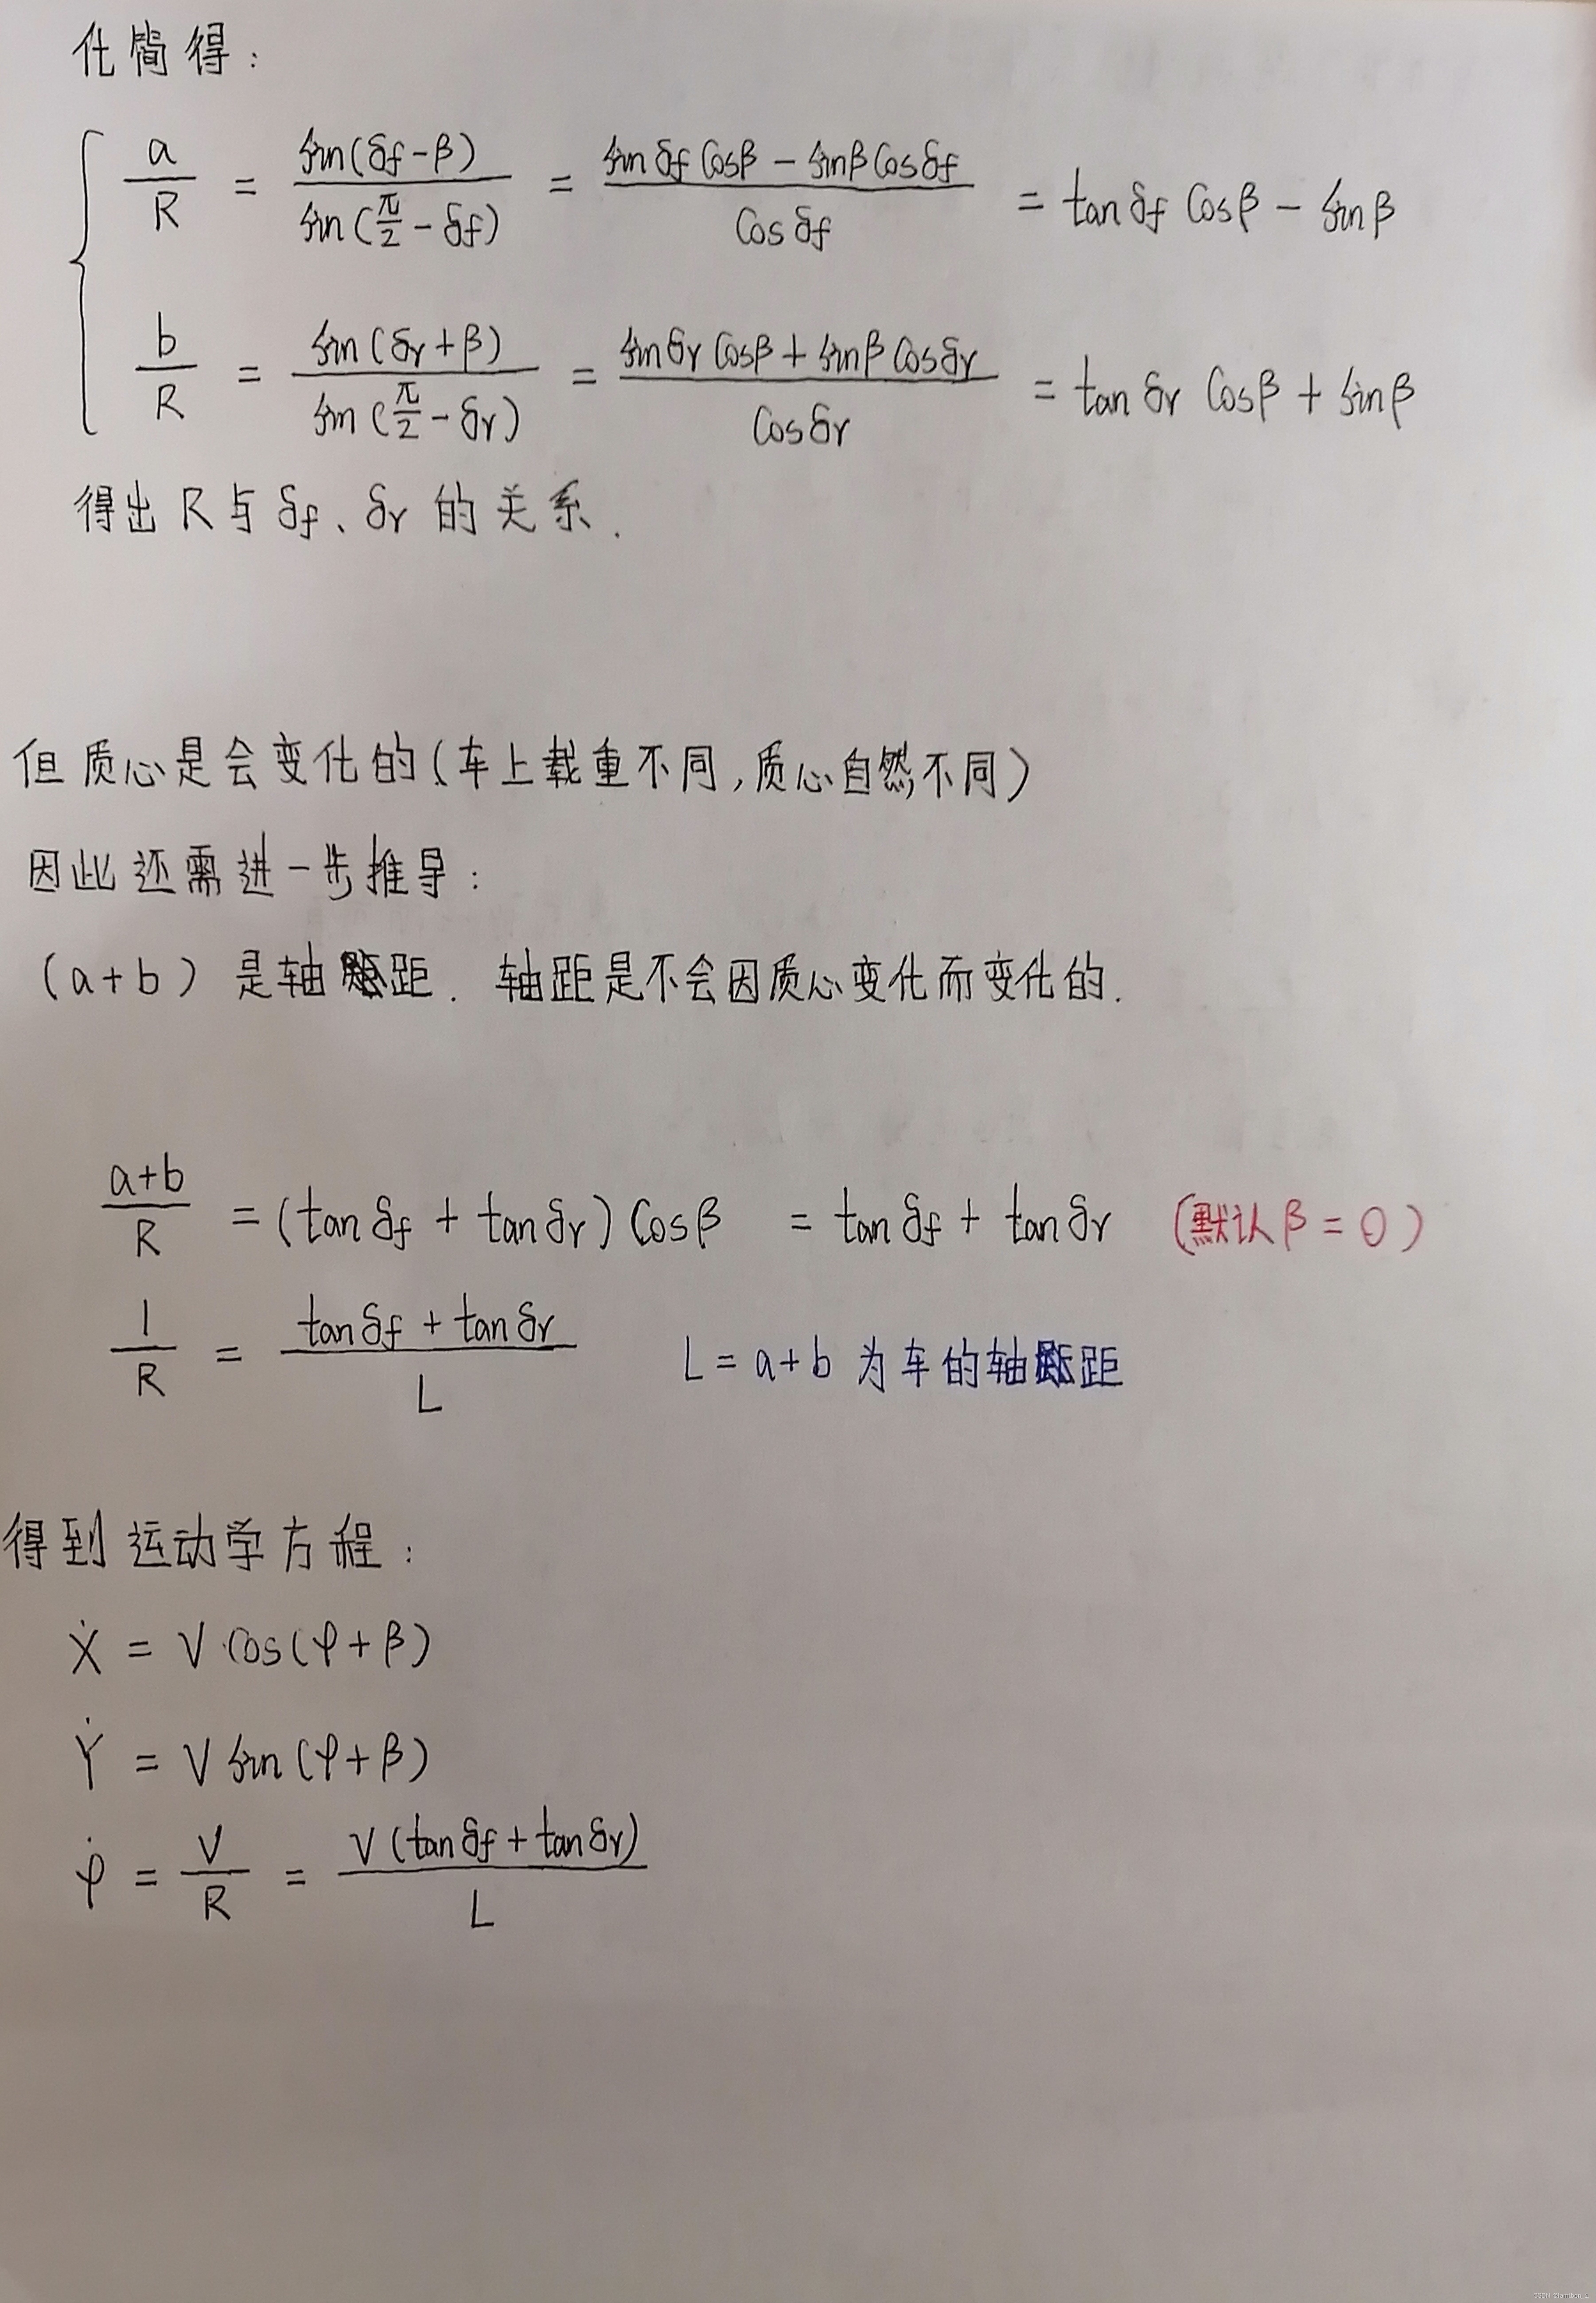 化简得:
a/R = sin(δf-β)/sin(π/2-δf) = (sinδf cosβ - sinβ cosδf)/cosδf = tanδf cosβ - sinβ
b/R = sin(δr+β)/sin(π/2-δr) = (sinδr cosβ + sinβ cosδr)/cosδr = tanδr cosβ + sinβ
得出 R 与 δf、δr 的关系.
但质心是会变化的(车上载重不同,质心自然不同)
因此还需进一步推导:
(a+b) 是轴距. 轴距是不会因质心变化而变化的.
(a+b)/R = (tanδf + tanδr) cosβ = tanδf + tanδr (默认β=0)
1/R = (tanδf + tanδr)/L L=a+b 为车的轴距
得到运动学方程:
Ẋ = V cos(φ+β)
Ẏ = V sin(φ+β)
φ̇ = V/R = V(tanδf + tanδr)/L